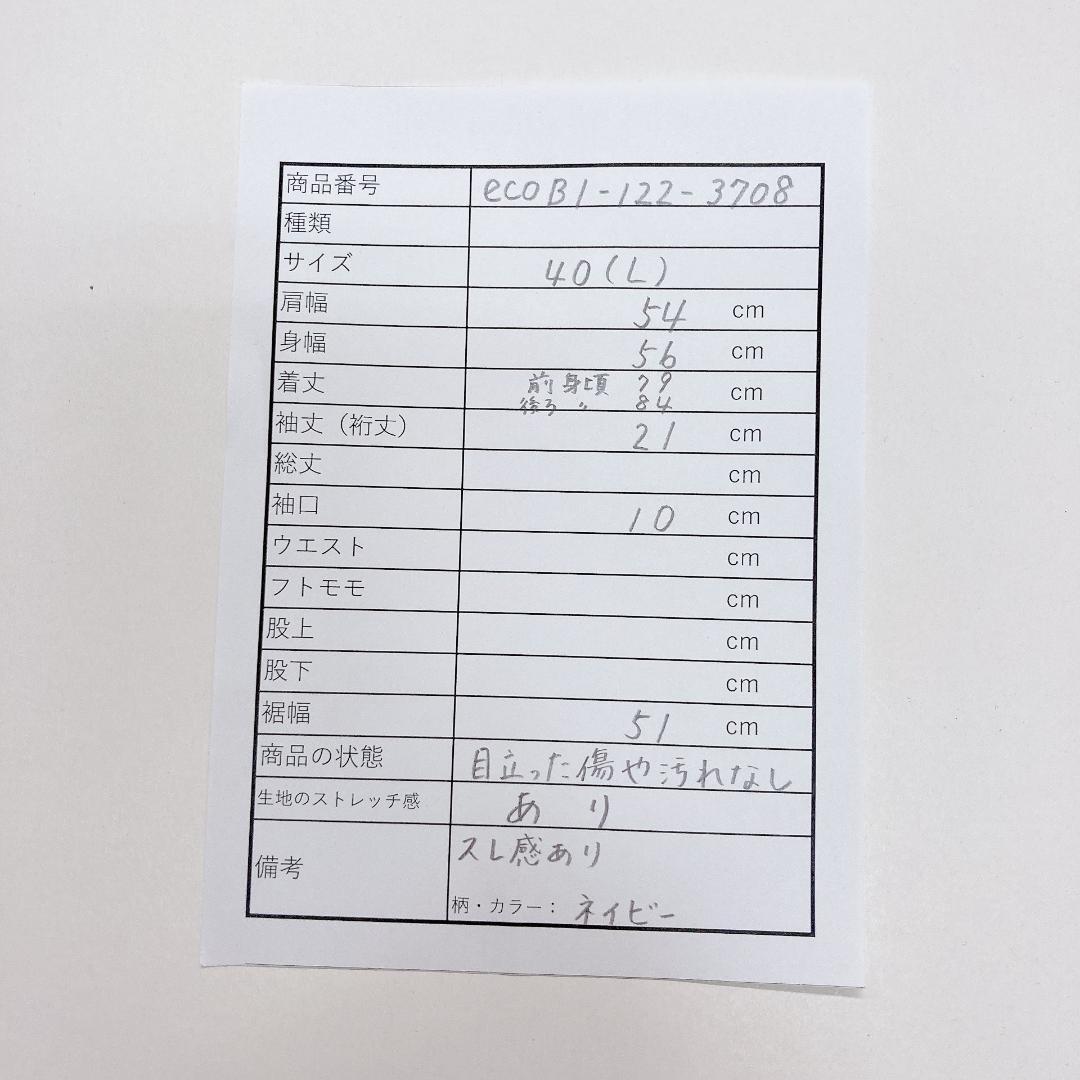 商品番号 ecoB1-122-3708
種類
サイズ 40(L)
肩幅 54 cm
身幅 56 cm
着丈 前身頃 79 cm
後ろ 〃 84
袖丈（裄丈） 21 cm
総丈 cm
袖口 10 cm
ウエスト cm
フトモモ cm
股上 cm
股下 cm
裾幅 51 cm
商品の状態 目立った傷や汚れなし
生地のストレッチ感 あり
備考 スレ感あり
柄・カラー： ネイビー